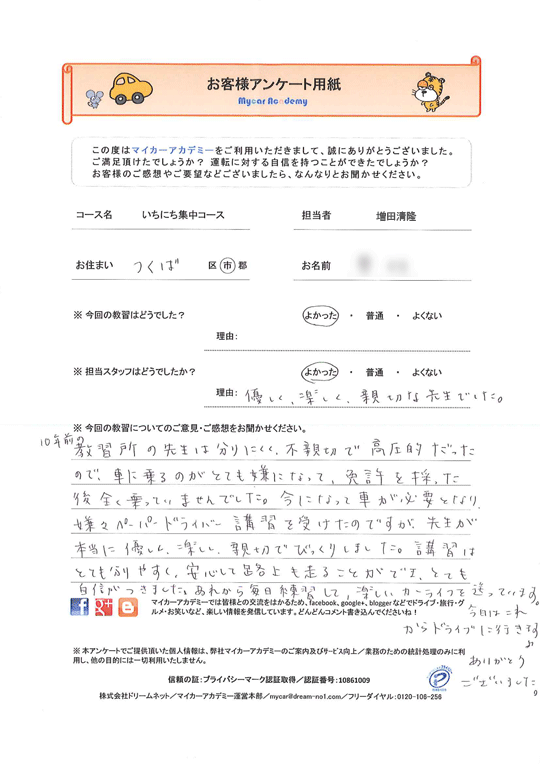 お客様アンケート用紙
Mycar Academy
この度はマイカーアカデミーをご利用いただきまして、誠にありがとうございました。
ご満足頂けたでしょうか？ 運転に対する自信を持つことができたでしょうか？
お客様のご感想やご要望などございましたら、なんなりとお聞かせください。
コース名 いちにち集中コース 担当者 増田清隆
お住まい つくば 区 市 郡 お名前
※ 今回の教習はどうでした？ よかった ・ 普通 ・ よくない
理由：
※ 担当スタッフはどうでしたか？ よかった ・ 普通 ・ よくない
理由： 優しく、楽しく、親切な先生でした。
※ 今回の教習についてのご意見・ご感想をお聞かせください。
10年前の
教習所の先生は分りにくく、不親切で高圧的だった
ので、車に乗るのがとても嫌になって、免許を採った
後全く乗っていませんでした。今になって車が必要となり、
嫌々ペーパードライバー講習を受けたのですが、先生が
本当に優しく、楽しく、親切でびっくりしました。講習は
とても分りやすく、安心して路上も走ることができ、とても
自信がつきました。あれから毎日練習して、楽しいカーライフを送っています。
マイカーアカデミーでは皆様との交流をはかるため、facebook、google+、bloggerなどでドライブ・旅行・グ
ルメ・お笑いなど、楽しい情報を発信しています。どんどんコメント書き込んでくださいね！
今日はこれ
からドライブに行きます♪
ありがとう
ございました。
※ 本アンケートでご提供頂いた個人情報は、弊社マイカーアカデミーのご案内及びサービス向上／業務のための統計処理のみに利
用し、他の目的には一切利用いたしません。
信頼の証：プライバシーマーク認証取得／認証番号：10861009
株式会社ドリームネット／マイカーアカデミー運営本部／mycar@dream-no1.com／フリーダイヤル：0120-106-256